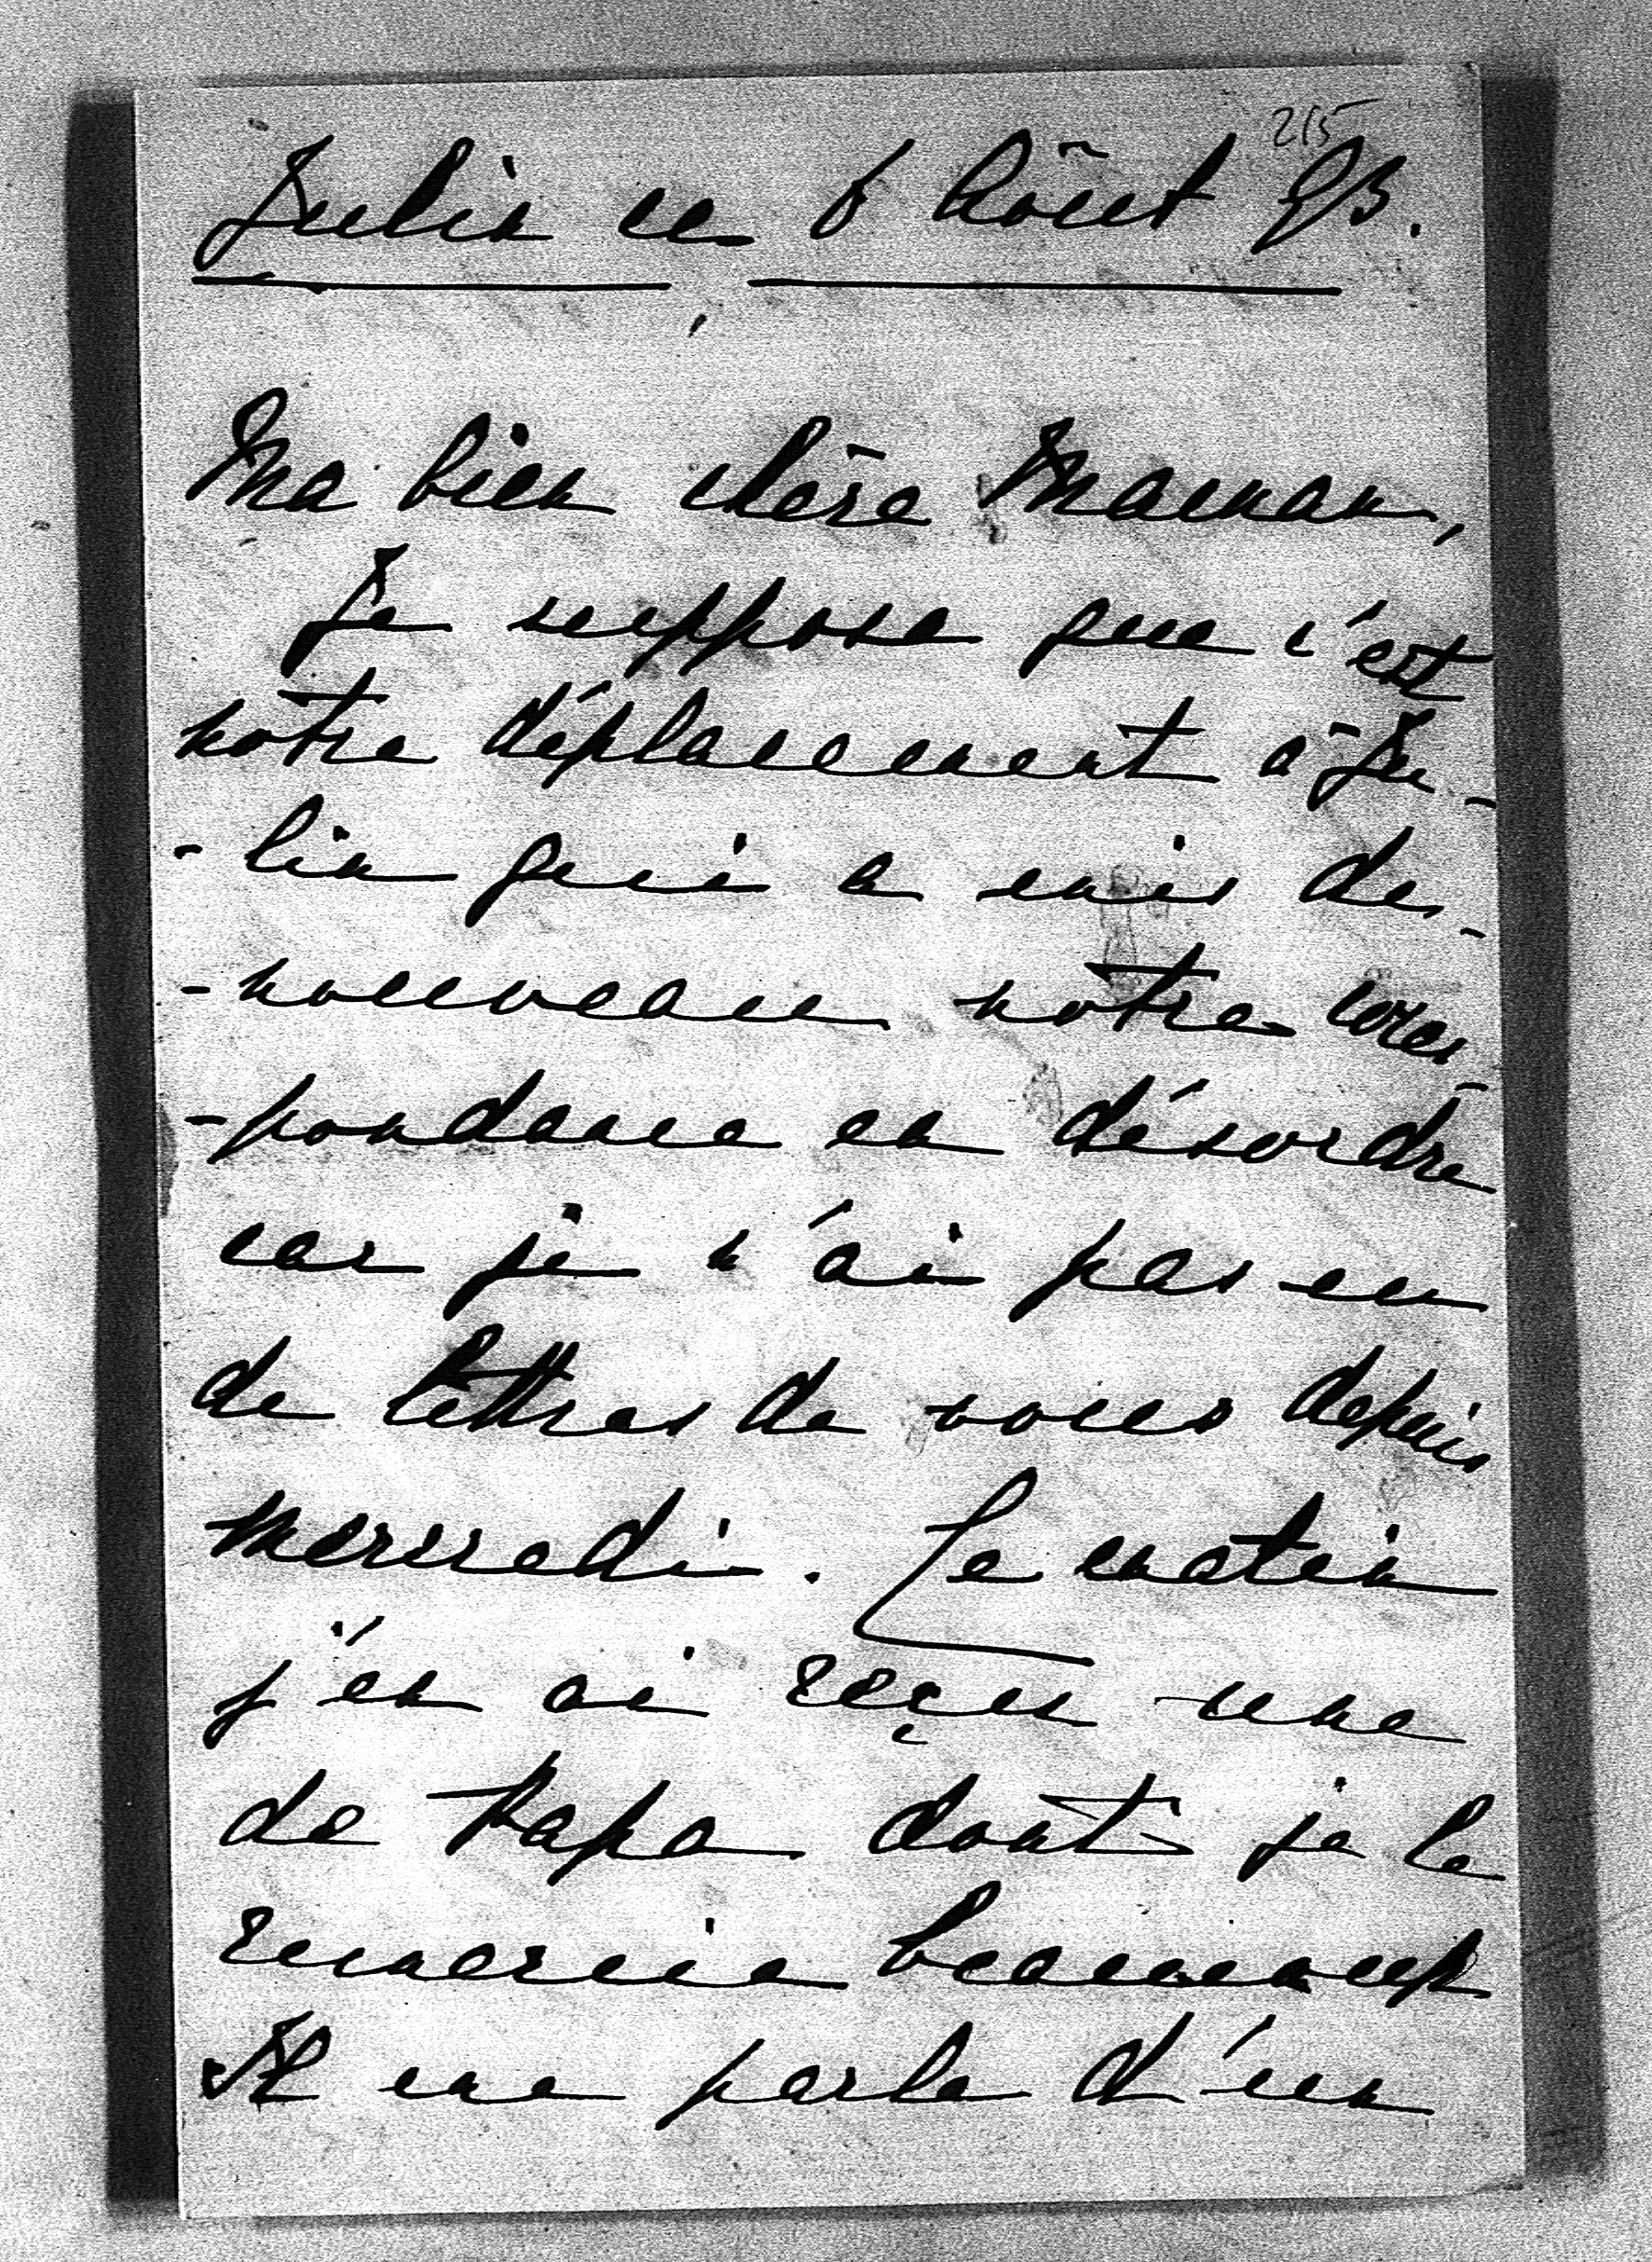 215
Julin ce 6 Août 93.
Ma bien chère Maman,
Je suppose que c'est
notre déplacement à Ju-
-lin qui a mis de-
-nouveau notre cores-
-pondance en désordre
car je n'ai pas eu
de lettres de vous depuis
mercredi. Ce matin
j'en ai reçu une
de Papa dont je le
remercie beaucoup
Il me parle d'un